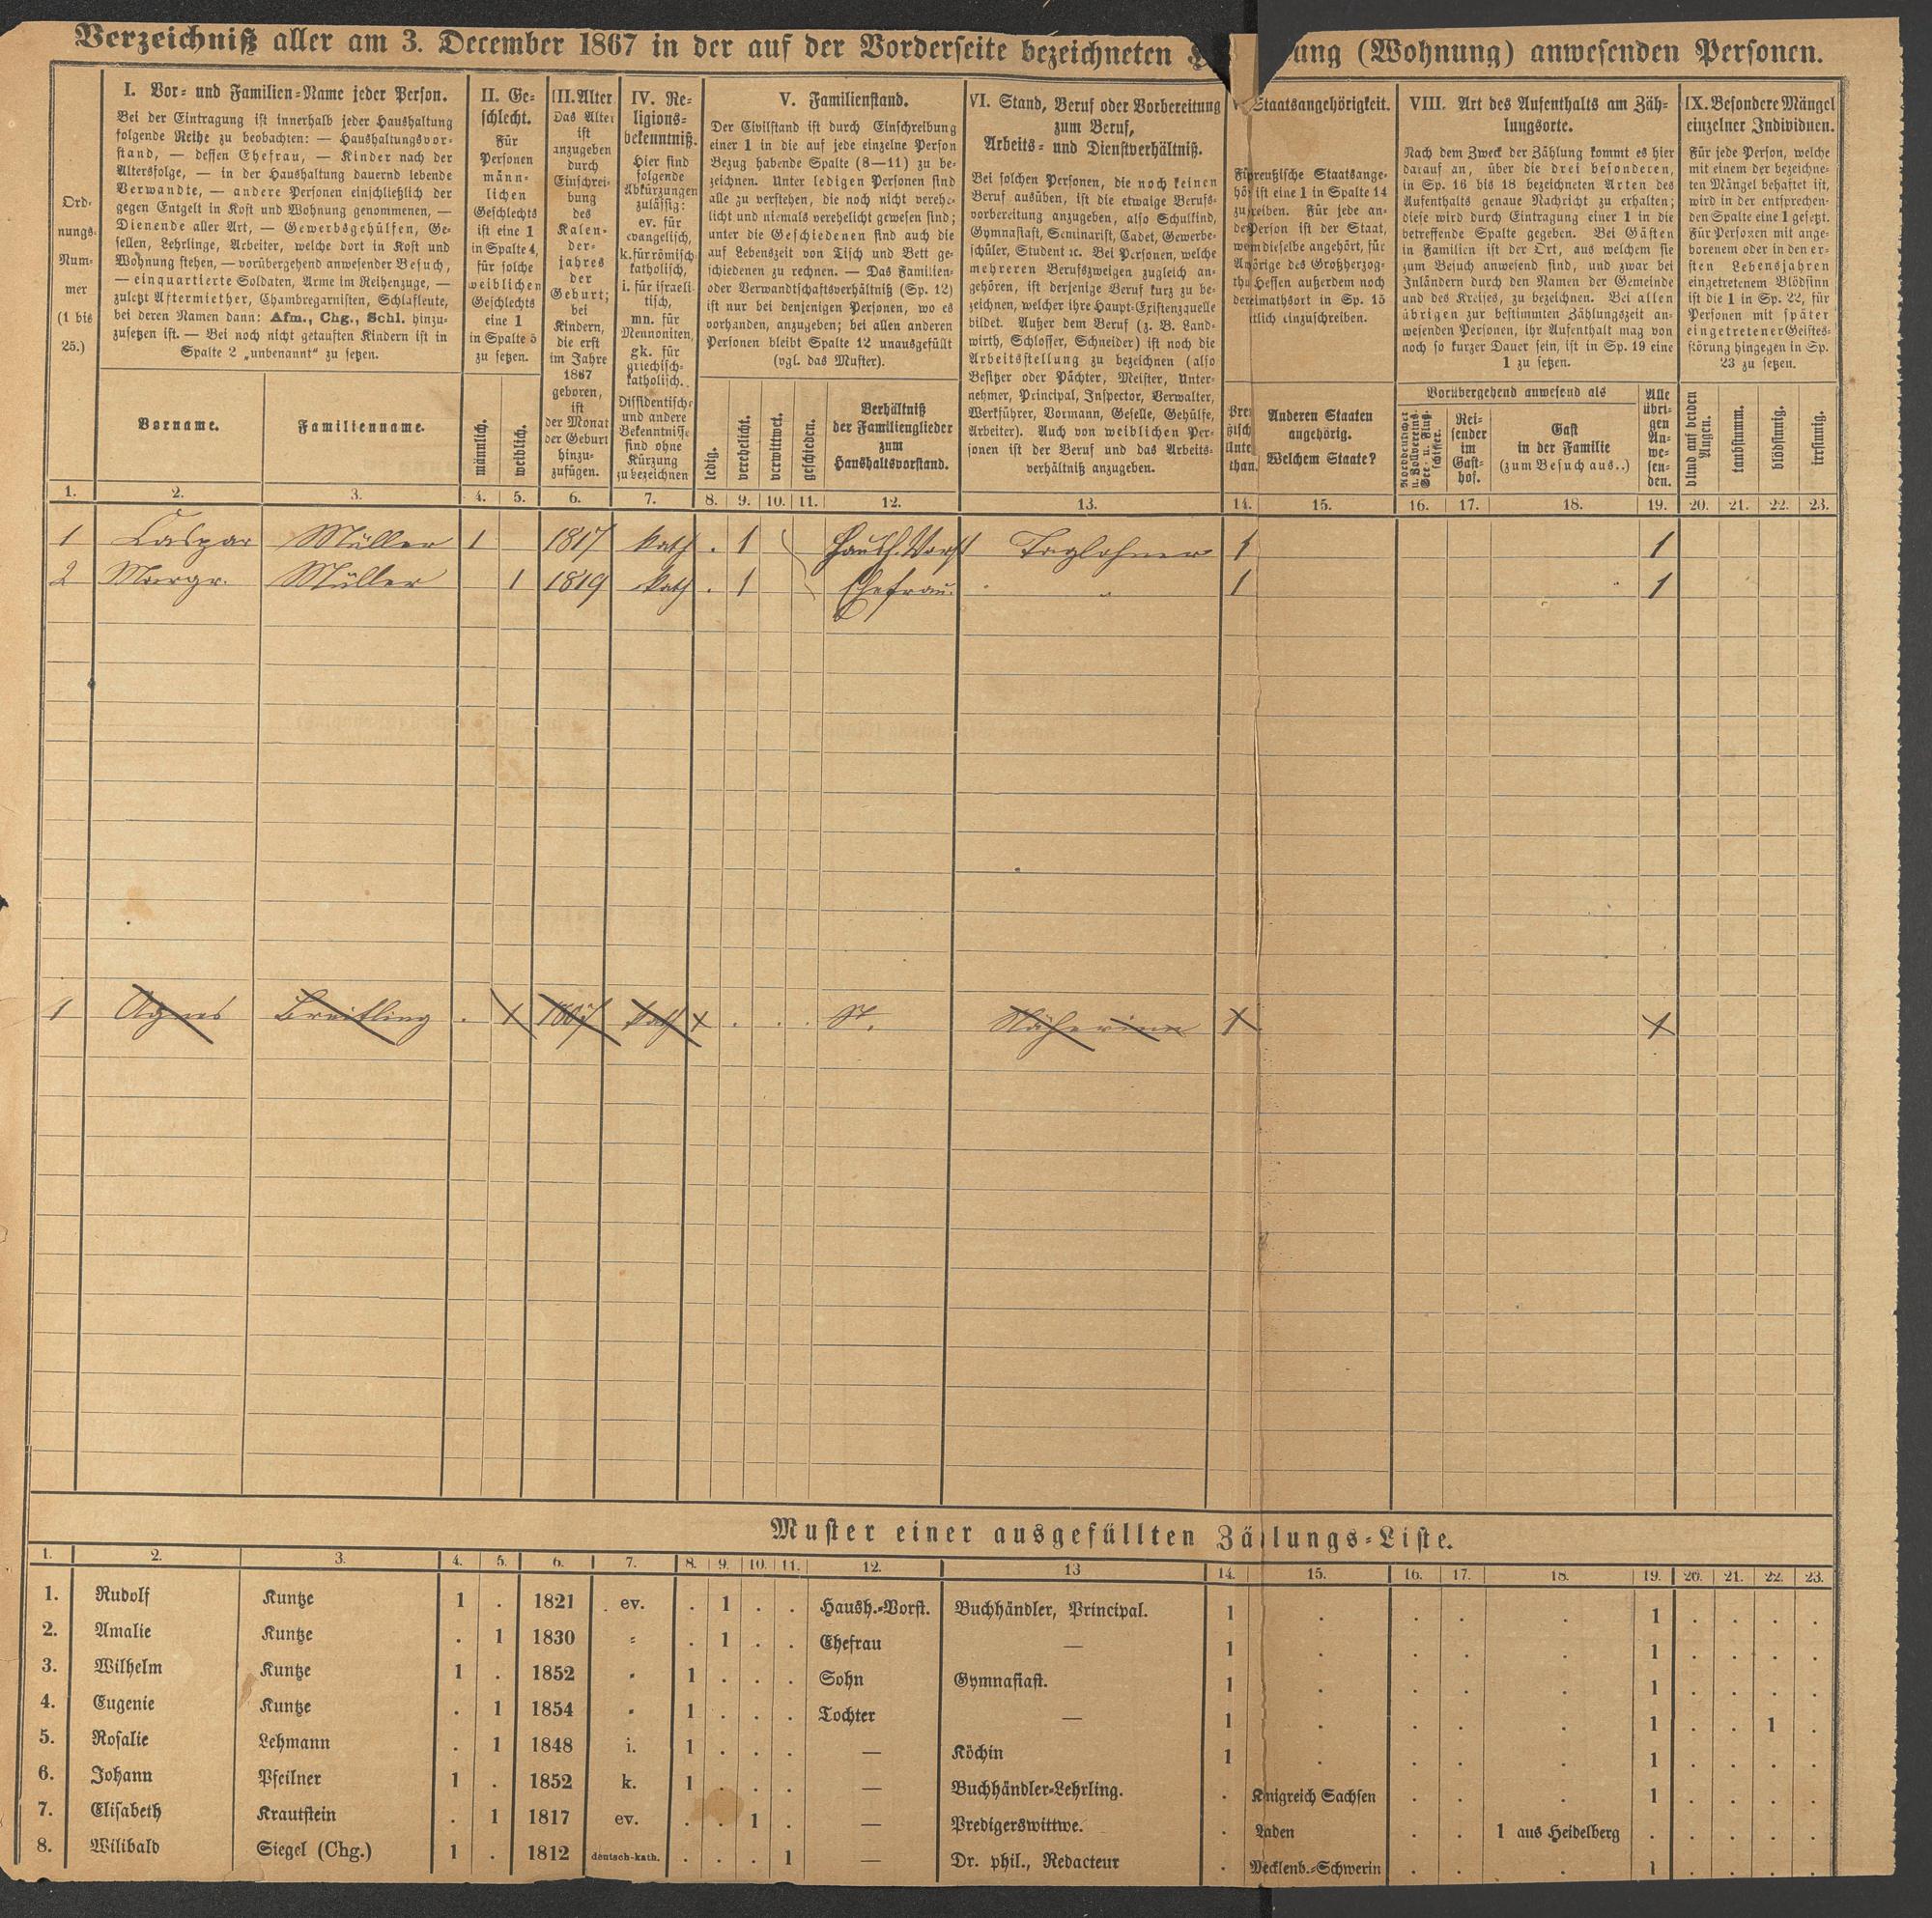 Verzeichniß aller am 3. December 1867 in der auf der Vorderseite bezeichneten ung (Wohnung) anwesenden Personen.
Ord-
nungs-
Num-
mer
(1 bis
25.)
I. Vor- und Familien-Name jeder Person.
Bei der Eintragung ist innerhalb jeder Haushaltung
folgende Reihe zu beobachten: — Haushaltungsvor-
stand, — dessen Ehefrau, — Kinder nach der
Altersfolge, — in der Haushaltung dauernd lebende
Verwandte, — andere Personen einschließlich der
gegen Entgelt in Kost und Wohnung genommenen, —
Dienende aller Art, — Gewerbsgehülfen, Ge-
sellen, Lehrlinge, Arbeiter, welche dort in Kost und
Wohnung stehen, — vorübergehend anwesender Besuch,
— einquartierte Soldaten, Arme im Reihenzuge, —
zuletzt Aftermiether, Chambregarnisten, Schlafleute,
bei deren Namen dann: Afm., Chg., Schl. hinzu-
zusetzen ist. — Bei noch nicht getauften Kindern ist in
Spalte 2 „unbenannt“ zu setzen.
Vorname.
Familienname.
II. Ge-
schlecht.
Für
Personen
männ-
lichen
Geschlechts
ist eine 1
in Spalte 4,
für solche
weiblichen
Geschlechts
eine 1
in Spalte 5
zu setzen.
männlich.
weiblich.
III. Alter
Das Alter
ist
anzugeben
durch
Einschrei-
bung
des
Kalen-
der-
jahres
der
Geburt;
bei
Kindern,
die erst
im Jahre
1867
geboren,
ist
der Monat
der Geburt
hinzu-
zufügen.
IV. Re-
ligions-
bekenntniß.
Hier sind
folgende
Abkürzungen
zulässig:
ev. für
evangelisch,
k. für römisch-
katholisch,
i. für israeli-
tisch,
mn. für
Mennoniten,
gk. für
griechisch-
katholisch.
Dissidentische
und andere
Bekenntnisse
sind ohne
Kürzung
zu bezeichnen
V. Familienstand.
Der Civilstand ist durch Einschreibung
einer 1 in die auf jede einzelne Person
Bezug habende Spalte (8—11) zu be-
zeichnen. Unter ledigen Personen sind
alle zu verstehen, die noch nicht verehe-
licht und niemals verehelicht gewesen sind;
unter die Geschiedenen sind auch die
auf Lebenszeit von Tisch und Bett ge-
schiedenen zu rechnen. — Das Familien-
oder Verwandtschaftsverhältniß (Sp. 12)
ist nur bei denjenigen Personen, wo es
vorhanden, anzugeben; bei allen anderen
Personen bleibt Spalte 12 unausgefüllt
(vgl. das Muster).
ledig.
verehelicht.
verwittwet.
geschieden.
Verhältniß
der Familienglieder
zum
Haushaltsvorstand.
VI. Stand, Beruf oder Vorbereitung
zum Beruf,
Arbeits- und Dienstverhältniß.
Bei solchen Personen, die noch keinen
Beruf ausüben, ist die etwaige Berufs-
vorbereitung anzugeben, also Schulkind,
Gymnasiast, Seminarist, Cadet, Gewerbe-
schüler, Student ꝛc. Bei Personen, welche
mehreren Berufszweigen zugleich an-
gehören, ist derjenige Beruf kurz zu be-
zeichnen, welcher ihre Haupt-Existenzquelle
bildet. Außer dem Beruf (z. B. Land-
wirth, Schlosser, Schneider) ist noch die
Arbeitsstellung zu bezeichnen (also
Besitzer oder Pächter, Meister, Unter-
nehmer, Principal, Inspector, Verwalter,
Werkführer, Vormann, Geselle, Gehülfe,
Arbeiter). Auch von weiblichen Per-
sonen ist der Beruf und das Arbeits-
verhältniß anzugeben.
Staatsangehörigkeit.
Für preußische Staatsange-
hö ist eine 1 in Spalte 14
zu reiben. Für jede an-
de Person ist der Staat,
wem dieselbe angehört, für
An örige des Großherzog-
thu Hessen außerdem noch
der eimathsort in Sp. 15
tlich einzuschreiben.
Pre
ßisch
Unte
than.
Anderen Staaten
angehörig.
Welchem Staate?
VIII. Art des Aufenthalts am Zäh-
lungsorte.
Nach dem Zweck der Zählung kommt es hier
darauf an, über die drei besonderen,
in Sp. 16 bis 18 bezeichneten Arten des
Aufenthalts genaue Nachricht zu erhalten;
diese wird durch Eintragung einer 1 in die
betreffende Spalte gegeben. Bei Gästen
in Familien ist der Ort, aus welchem sie
zum Besuch anwesend sind, und zwar bei
Inländern durch den Namen der Gemeinde
und des Kreises, zu bezeichnen. Bei allen
übrigen zur bestimmten Zählungszeit an-
wesenden Personen, ihr Aufenthalt mag von
noch so kurzer Dauer sein, ist in Sp. 19 eine
1 zu setzen.
Vorübergehend anwesend als
Norddeutscher
u. Zollvereins-
See- u. Fluß-
schiffer.
Rei-
sender
im
Gast-
hof.
Gast
in der Familie
(zum Besuch aus..)
Alle
übri-
gen
An-
we-
sen-
den.
IX. Besondere Mängel
einzelner Individuen.
Für jede Person, welche
mit einem der bezeichne-
ten Mängel behaftet ist,
wird in der entsprechen-
den Spalte eine 1 gesetzt.
Für Personen mit ange-
borenem oder in den er-
sten Lebensjahren
eingetretenem Blödsinn
ist die 1 in Sp. 22, für
Personen mit später
eingetretener Geistes-
störung hingegen in Sp.
23 zu setzen.
blind auf beiden
Augen.
taubstumm.
blödsinnig.
irrsinnig.
1. 2. 3. 4. 5. 6. 7. 8. 9. 10. 11. 12. 13. 14. 15. 16. 17. 18. 19. 20. 21. 22. 23.
1 Caspar Müller 1 1817 kath . 1 Haush. Vorst Taglohner 1 1
2 Margr. Müller 1 1819 kath . 1 Ehefrau. 1 1
1 Agnes Breitling . 1 1807 kath 1 . . . St. Näherinn 1 1
Muster einer ausgefüllten Zählungs-Liste.
1. 2. 3. 4. 5. 6. 7. 8. 9. 10. 11. 12. 13 14. 15. 16. 17. 18. 19. 20. 21. 22. 23.
1. Rudolf Kuntze 1 . 1821 ev. . 1 . . Haush.-Vorst. Buchhändler, Principal. 1 . . . . 1 . . . .
2. Amalie Kuntze . 1 1830 " . 1 . . Ehefrau — 1 . . . . 1 . . . .
3. Wilhelm Kuntze 1 . 1852 " 1 . . . Sohn Gymnasiast. 1 . . . . 1 . . . .
4. Eugenie Kuntze . 1 1854 " 1 . . . Tochter — 1 . . . . 1 . . 1 .
5. Rosalie Lehmann . 1 1848 i. 1 . . . — Köchin 1 . . . . 1 . . . .
6. Johann Pfeilner 1 . 1852 k. 1 . . . — Buchhändler-Lehrling. . Knigreich Sachsen . . . 1 . . . .
7. Elisabeth Krautstein . 1 1817 ev. . . 1 . — Predigerswittwe. . Baden . . 1 aus Heidelberg . . . . .
8. Wilibald Siegel (Chg.) 1 . 1812 deutsch-kath. . . . 1 — Dr. phil., Redacteur . Mecklenb.-Schwerin . . . 1 . . . .